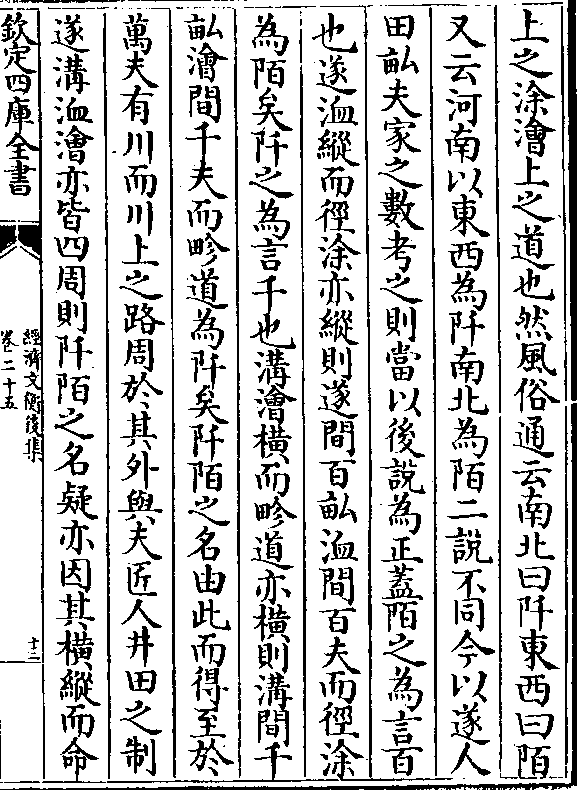 上之涂澮上之道也然風俗通云南北曰阡東西曰陌
又云河南以東西為阡南北為陌二說不同今以遂人
田畝夫家之數考之則當以後說為正葢陌之為言百
也遂洫縱而徑涂亦縱則遂間百畝洫間百夫而徑涂
為陌矣阡之為言千也溝澮橫而畛道亦橫則溝間千
畝澮間千夫而畛道為阡矣阡陌之名由此而得至於
萬夫有川而川上之路周於其外與夫匠人井田之制
遂溝洫澮亦皆四周則阡陌之名疑亦因其橫縱而命
欽定四庫全書
經濟文衡後集
卷二十五
十二